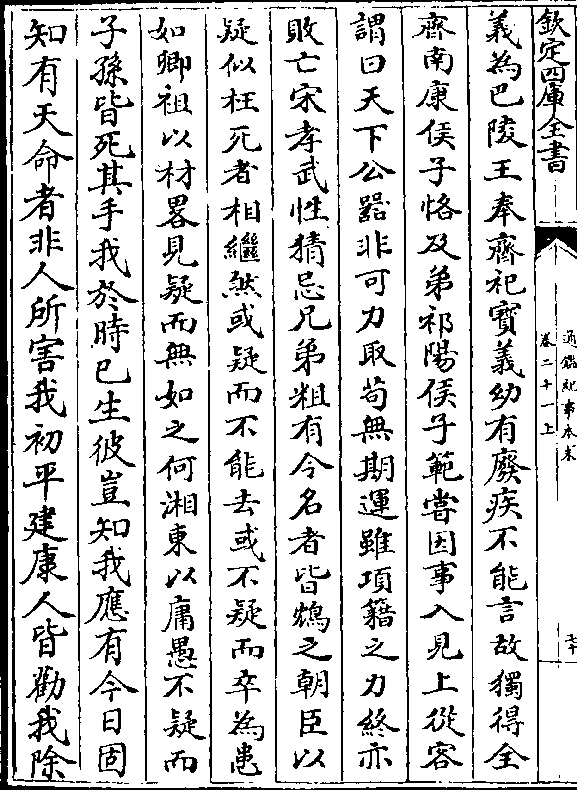 欽定四庫全書
通鑑紀事本末
卷二十一上
義為巴陵王奉齊祀寶義幼有廢疾不能言故獨得全
齊南康侯子恪及弟祁陽侯子範嘗因事入見上從容
謂曰天下公器非可力取苟無期運雖項籍之力終亦
敗亡宋孝武性猜忌兄弟粗有令名者皆鴆之朝臣以
疑似枉死者相繼然或疑而不能去或不疑而卒為患
如卿祖以材畧見疑而無如之何湘東以庸愚不疑而
子孫皆死其手我於時已生彼豈知我應有今日固
知有天命者非人所害我初平建康人皆勸我除